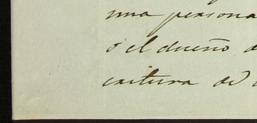 una persona
ó el dueño d
critura de